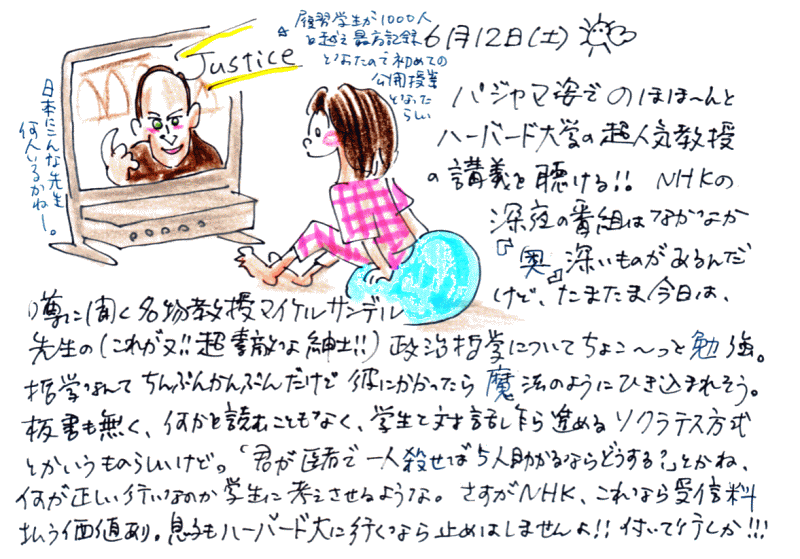 履習学生が1000人
を越え最高記録
となったので初めての
公開授業
となった
らしい
6月12日(土)
Justice
日本にこんな先生
何人いるかねー。
パジャマ姿でのほほ〜んと
ハーバード大学の超人気教授
の講義を聴ける!! NHKの
深夜の番組はなかなか
『奥』深いものがあるんだ
けど、たまたま今日は、
噂に聞く名物教授マイケルサンデル
先生の(これが又!!超素敵な紳士!!)政治哲学についてちょこ〜っと勉強。
哲学なんてちんぷんかんぷんだけど彼にかかったら魔法のようにひき込まれそう。
板書も無く、何かを読むこともなく、学生と対話し乍ら進めるソクラテス方式
とかいうものらしいけど。「君が医者で一人殺せば5人助かるならどうする?」とかね、
何が正しい行いなのか学生に考えさせるような。さすがNHK、これなら受信料
払う価値あり。息子もハーバード大に行くなら止めはしませんよ!!付いて行くか!!!